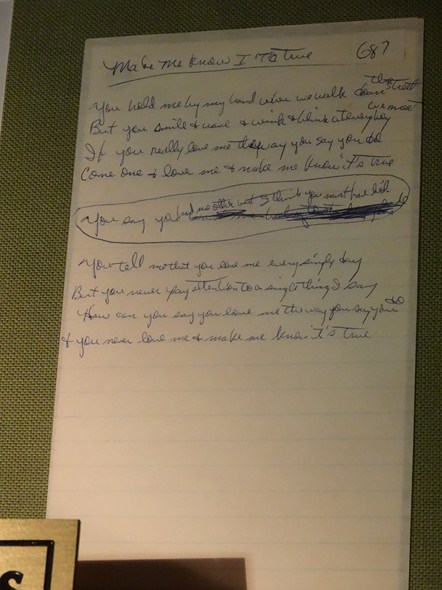 Make Me Know It's True
687
You hold me by my hand when we walk down the street
But you smile & wave & wink & blink at every boy we meet
If you really love me the way you say you do
Come one & love me & make me know it's true
You say you had me
You tell me that you love me every single day
But you never pay attention to a single thing I say
How can you say you love me the way you say you do
& you never love me & make me know it's true
S